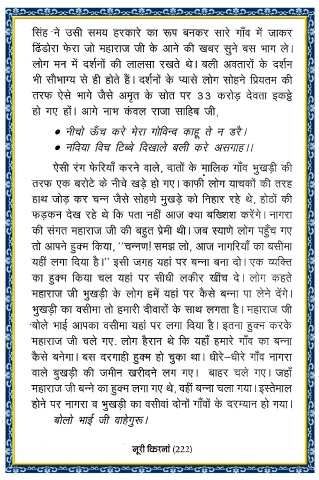 सिंह ने उसी समय हरकारे का रूप बनकर सारे गाँव में जाकर
ढिंडोरा फेरा जो महाराज जी के आने की खबर सुने बस भाग ले।
लोग मन में दर्शनों की लालसा रखते थे। बली अवतारों के दर्शन
भी सौभाग्य से ही होते हैं। दर्शनों के प्यासे लोग सोहने प्रियतम की
तरफ ऐसे भागे जैसे अमृत के स्रोत पर 33 करोड़ देवता इकट्ठे
हो गए हों। आगे नाभ कंवल राजा साहिब जी,
• नीचो ऊँच करे मेरा गोविन्द काहू ते न डरै।
• नदिया विच टिब्बे दिखाले बली करे असगाह।।
ऐसी रंग फेरियाँ करने वाले, दातों के मालिक गाँव भुखड़ी की
तरफ एक बरोटे के नीचे खड़े हो गए। काफी लोग याचकों की तरह
हाथ जोड़ कर चन्न जैसे सोहणे मुखड़े को निहार रहे थे, होठों की
फड़कन देख रहे थे कि पता नहीं आज क्या बख्शिश करेंगे। नागरा
की संगत महाराज जी की बहुत प्रेमी थी। जब स्याणे लोग पहुँच गए
तो आपने हुक्म किया, ''चन्नण! समझ लो, आज नागरियाँ का बसीमा
यहीं लगा दिया है।'' इसी जगह यहां पर बन्ना बना दो। एक व्यक्ति
का हुक्म किया चल यहां पर सीधी लकीर खींच दे। लोग कहते
महाराज जी भुखड़ी के लोग हमें यहां पर कैसे बन्ना पा लेने देंगे।
भुखड़ी का वसीमा तो हमारी दीवारों के साथ लगता है। महाराज जी
बोले भाई आपका वसीमा यहां पर लगा दिया है। इतना हुक्म करके
महाराज जी चले गए। लोग हैरान थे कि यहाँ हमारे गाँव का बन्ना
कैसे बनेगा। बस दरगाही हुक्म हो चुका था। धीरे-धीरे गाँव नागरा
वाले बुखड़ी की जमीन खरीदने लग गए। बाहर चले गए। जहाँ
महाराज जी बन्ने का हुक्म लगा गए थे, वहीं बन्ना चला गया। इस्तेमाल
होने पर नागरा व भुखड़ी का वसीवां दोनों गाँवों के दरम्यान हो गया।
बोलो भाई जी वाहेगुरू।
नूरी किरनां (222)